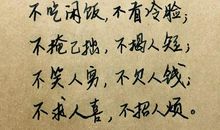 不吃闲饭，不看冷脸；
不掩己拙，不揭人短；
不笑人穷，不欠人钱；
不求人喜，不招人烦。